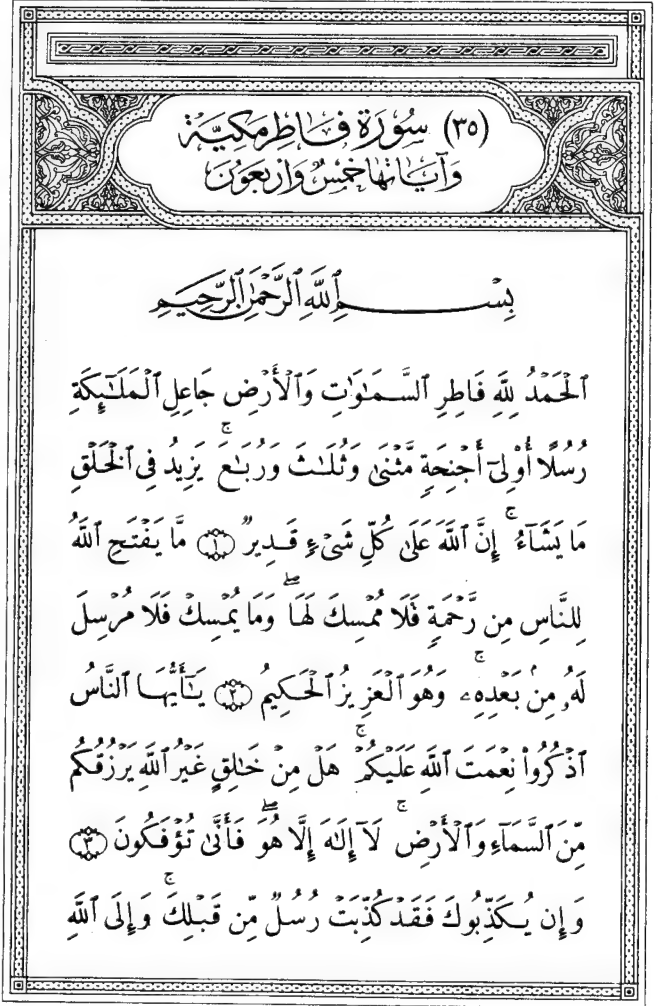 (٣٥) سُورَة فَاطِر مَكِيَّة
وَآيَاتُهَا خَمْسٌ وَارْبَعَوُنَ
بِسْمِ ٱللَّهِ ٱلرَّحْمَٰنِ ٱلرَّحِيمِ
ٱلْحَمْدُ لِلَّهِ فَاطِرِ ٱلسَّمَٰوَٰتِ وَٱلْأَرْضِ جَاعِلِ ٱلْمَلَٰٓئِكَةِ
رُسُلًا أُوْلِىٓ أَجْنِحَةٍ مَّثْنَىٰ وَثُلَٰثَ وَرُبَٰعَ ۚ يَزِيدُ فِى ٱلْخَلْقِ
مَا يَشَآءُ ۚ إِنَّ ٱللَّهَ عَلَىٰ كُلِّ شَىْءٍ قَدِيرٌ ۝١ مَّا يَفْتَحِ ٱللَّهُ
لِلنَّاسِ مِن رَّحْمَةٍ فَلَا مُمْسِكَ لَهَا ۖ وَمَا يُمْسِكْ فَلَا مُرْسِلَ
لَهُۥ مِنۢ بَعْدِهِۦ ۚ وَهُوَ ٱلْعَزِيزُ ٱلْحَكِيمُ ۝٢ يَٰٓأَيُّهَا ٱلنَّاسُ
ٱذْكُرُواْ نِعْمَتَ ٱللَّهِ عَلَيْكُمْ ۚ هَلْ مِنْ خَٰلِقٍ غَيْرُ ٱللَّهِ يَرْزُقُكُم
مِّنَ ٱلسَّمَآءِ وَٱلْأَرْضِ ۚ لَآ إِلَٰهَ إِلَّا هُوَ ۖ فَأَنَّىٰ تُؤْفَكُونَ ۝٣
وَإِن يُكَذِّبُوكَ فَقَدْ كُذِّبَتْ رُسُلٌ مِّن قَبْلِكَ ۚ وَإِلَى ٱللَّهِ